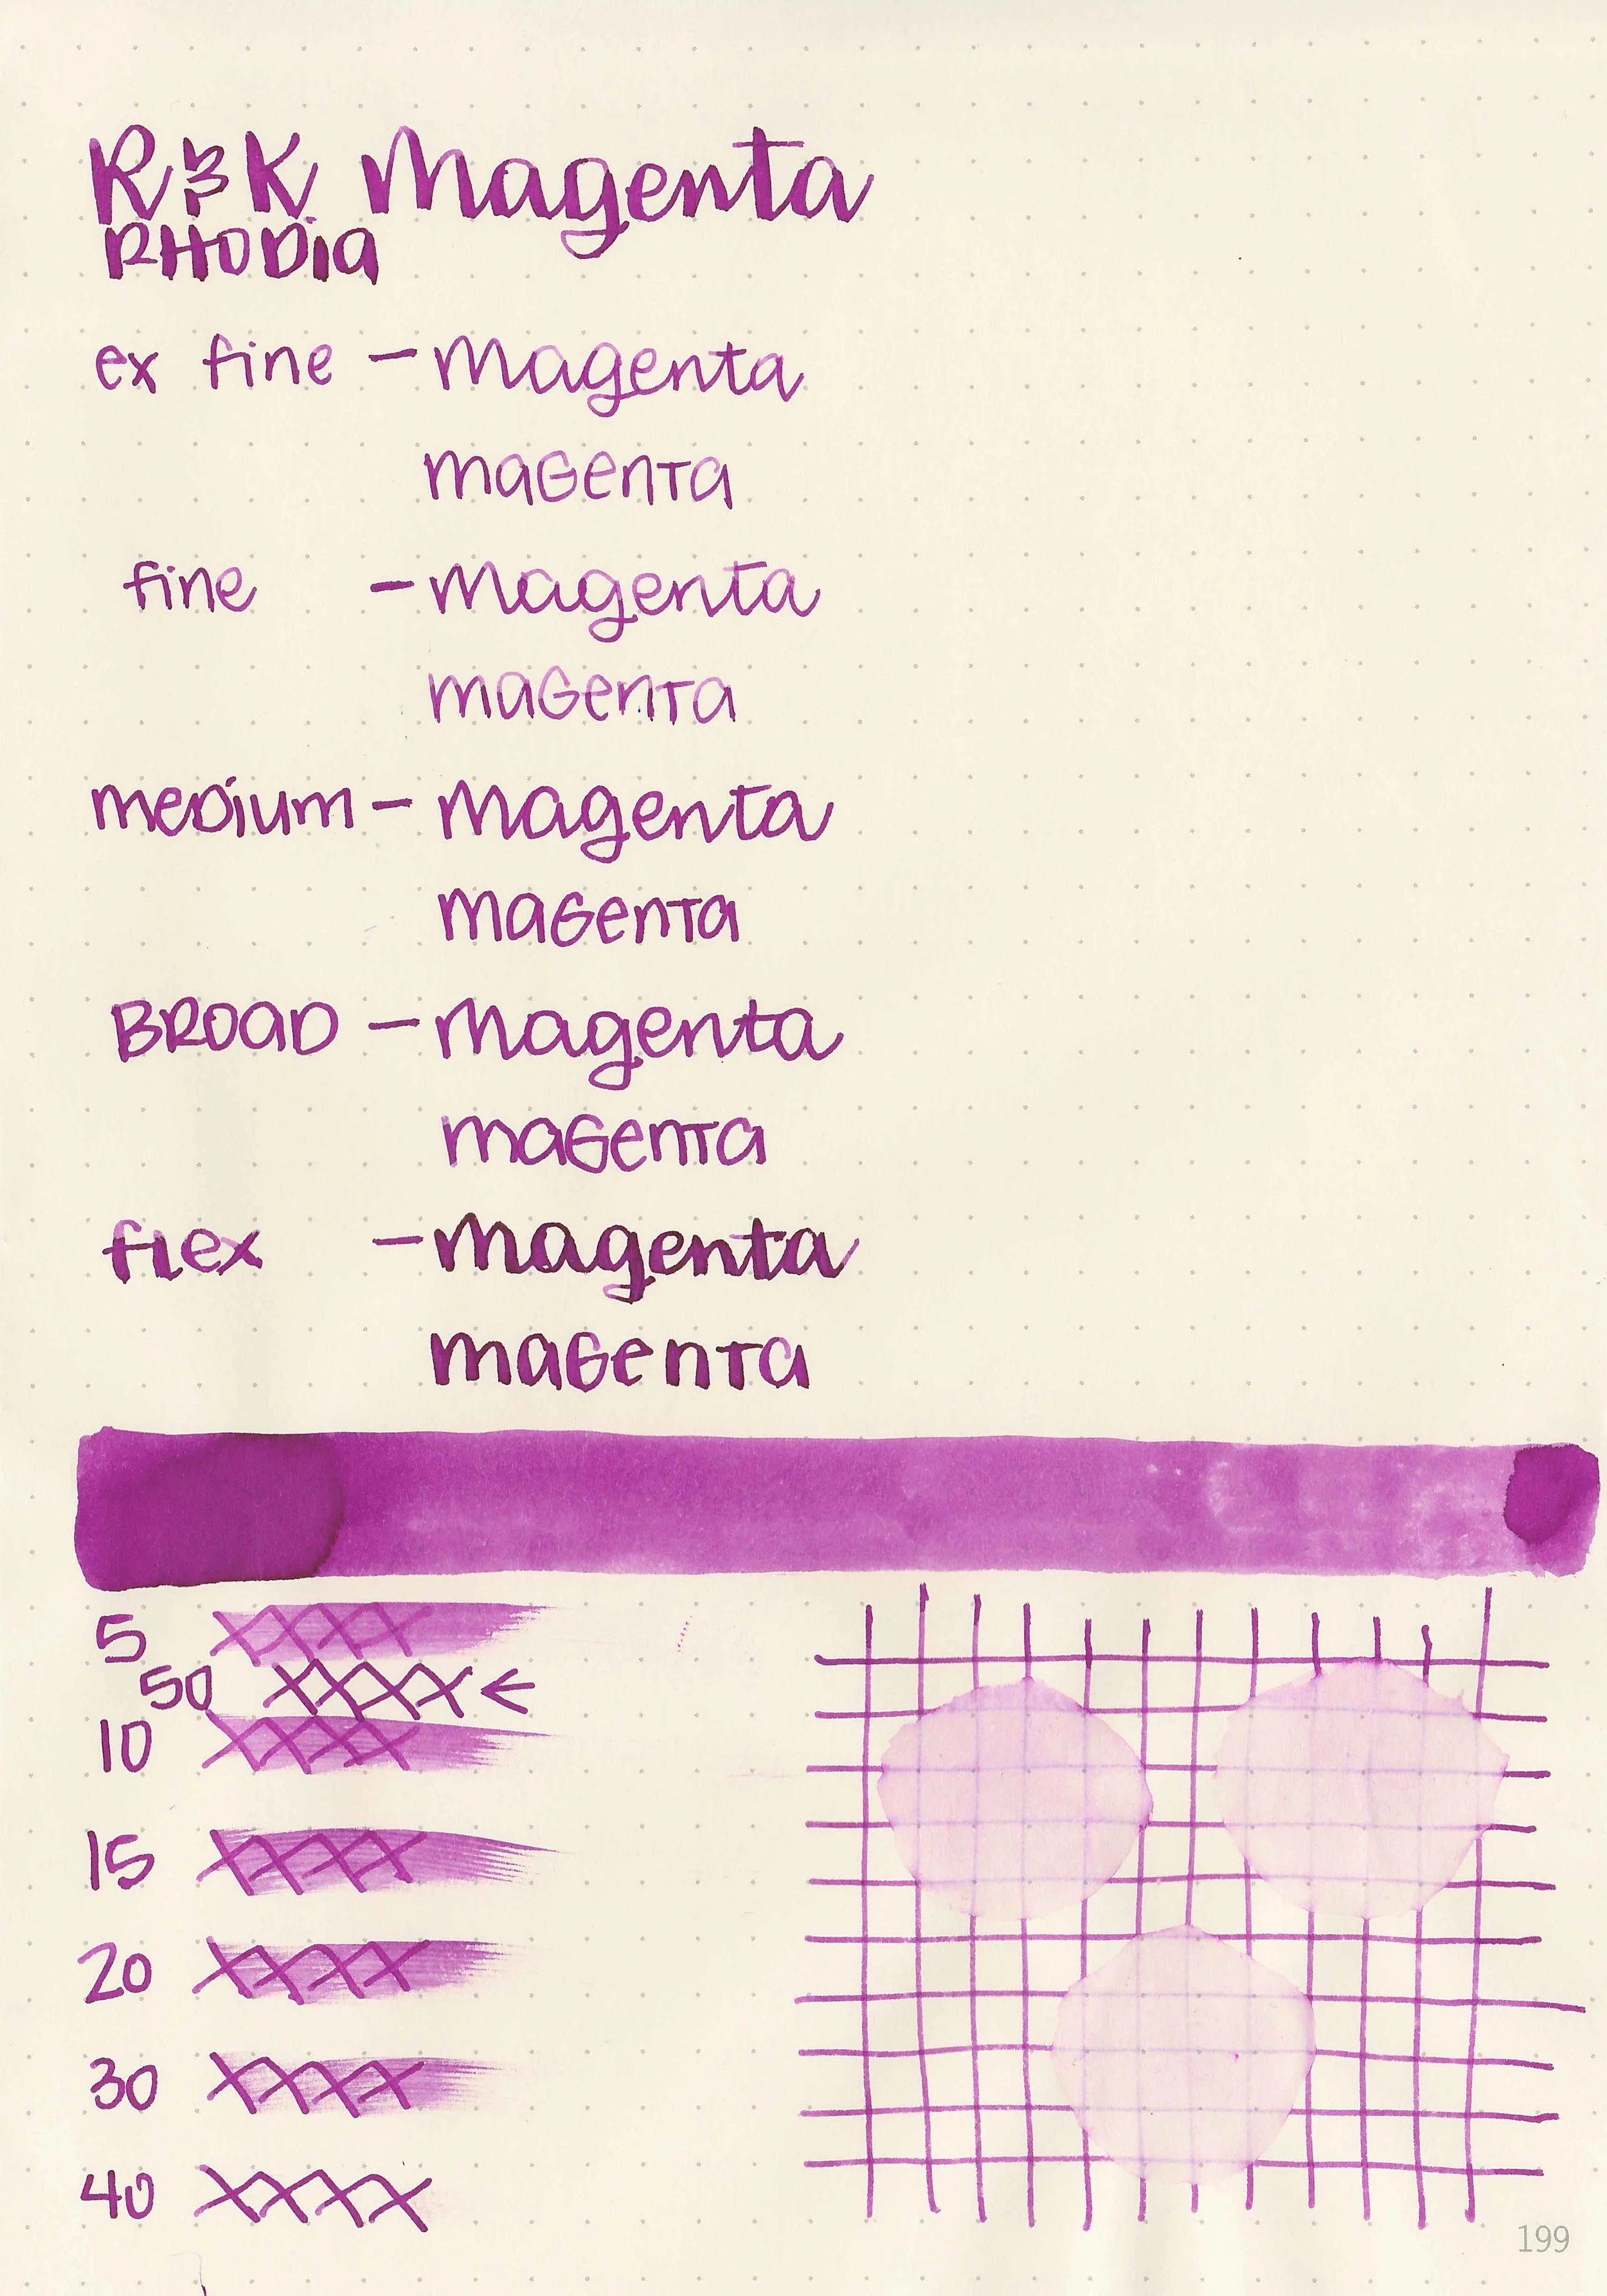 R&K Magenta
RHODia
ex fine - Magenta
maGenTa
fine - Magenta
maGenTa
meDium - Magenta
maGenTa
BROaD - Magenta
maGenTa
fLex - Magenta
maGenTa
5 XXXX
50 XXXX ←
10 XXXX
15 XXXX
20 XXXX
30 XXXX
40 XXXX
199